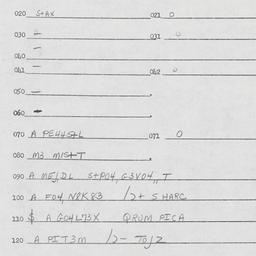 020 S+AX 021 0
030 — 031 0
—
040
041 — 042 0
050 —
060 —
070 A PE44S+L 071 0
080 M3 MIS+T
090 A ME/DL S+P04, G3V04,, T
100 A F04, N8K83 /2+ S HARC
110 $ A G04L73X QRUM PICA
120 A PIT3M /2- TO/2